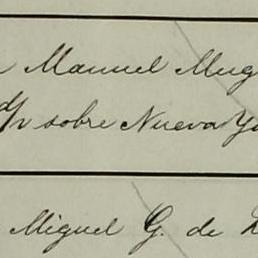 Manuel Mug
d/v sobre Nueva Yo
Miguel G. de